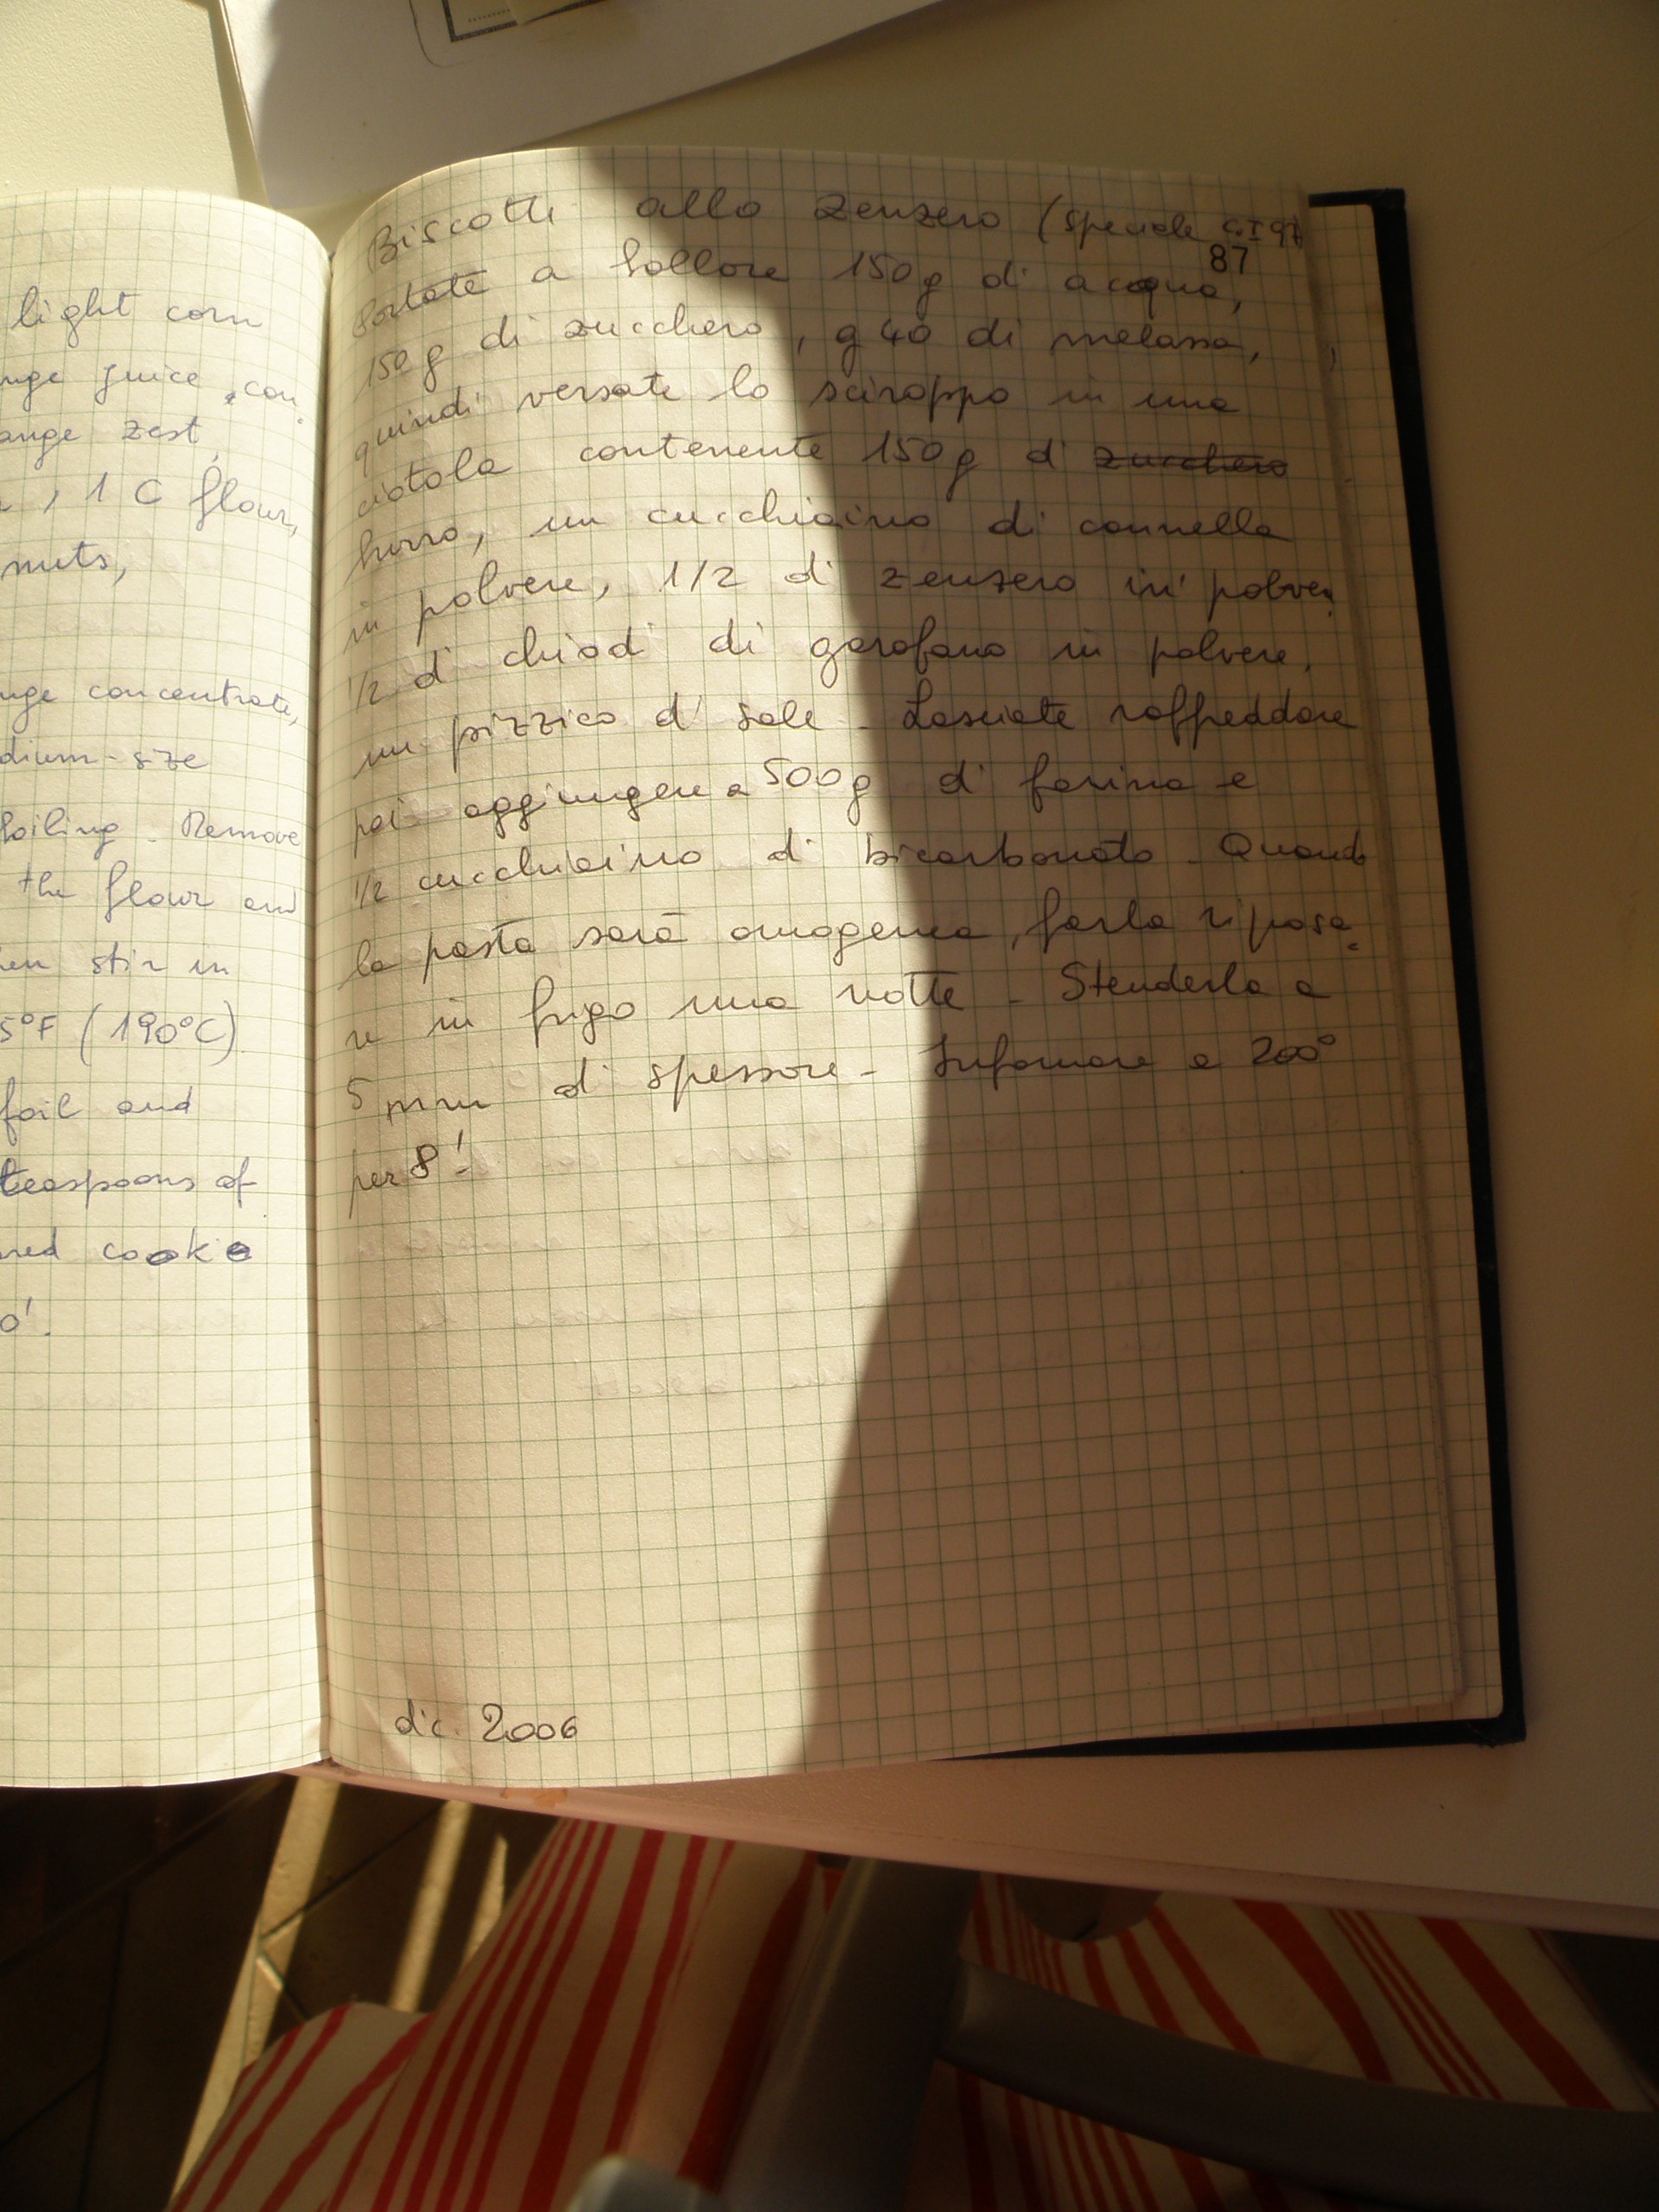 light corn
nge juice, con
ange zest,
, 1 C flour,
nuts,
nge concentrate,
dium-size
boiling. Remove
the flour and
en stir in
5°F (190°C)
foil and
teaspoons of
red cookie
0'.
Biscotti allo zenzero (speciale C.I 97
87
Portate a bollore 150g di acqua,
150g di zucchero, g 40 di melassa,
quindi versate lo sciroppo in una
ciotola contenente 150g di zucchero
burro, un cucchiaino di cannella
in polvere, 1/2 di zenzero in polvere,
1/2 di chiodi di garofano in polvere,
un pizzico di sale. Lasciate raffreddare
poi aggiungere a 500g di farina e
1/2 cucchiaino di bicarbonato. Quando
la pasta sarà omogenea, farla riposa-
re in frigo una notte. Stenderla a
5 mm di spessore. Infornare a 200°
per 8'.
dic. 2006